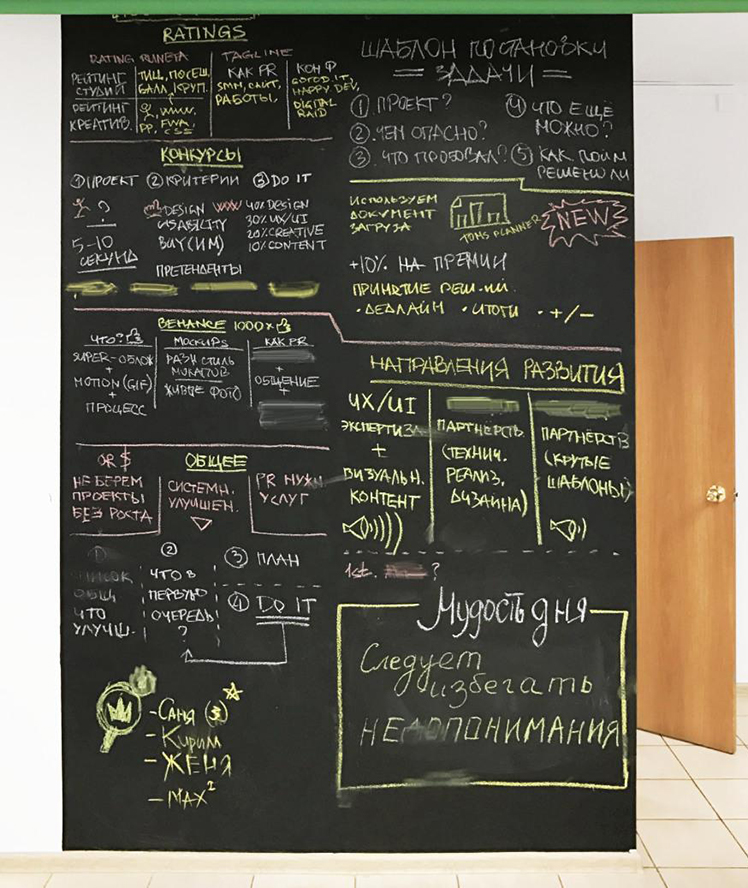 RATINGS
RATING RUNETA
РЕЙТИНГ
СТУДИЙ
РЕЙТИНГ
КРЕАТИВ.
ТИЦ, ПОСЕЩ.
БАЛЛ, КРУП.
www.
PP, FWA,
CSS
TAGLINE
КАК PR
SMM, САЙТ,
РАБОТЫ,
КОНФ
GOTOD.IT,
HAPPY DEV,
DIGITAL
RAID
КОНКУРСЫ
① ПРОЕКТ
?
5-10
СЕКУНД
② КРИТЕРИИ
DESIGN
USABILITY
ВАУ (ИМ)
③ DO IT
40% DESIGN
30% UX/UI
20% CREATIVE
10% CONTENT
ПРЕТЕНДЕНТЫ
BEHANCE 1000×
ЧТО?
SUPER-ОБЛОЖ
+
MOTION (GIF)
+
ПРОЦЕСС
MOCKUPS
РАЗН СТИЛЬ
МОКАПОВ
ЖИВЫЕ ФОТО
КАК PR
+
ОБЩЕНИЕ
+
ОБЩЕЕ
OR $
НЕ БЕРЕМ
ПРОЕКТЫ
БЕЗ РОСТА
СИСТЕМН.
УЛУЧШЕН.
PR НУЖН
УСЛУГ
①
СПИСОК
ОБЩ
ЧТО
УЛУЧШ.
②
ЧТО В
ПЕРВУЮ
ОЧЕРЕДЬ
?
③ ПЛАН
④ DO IT
- Саня
- Кирилл
- ЖЕНЯ
- MAX²
ШАБЛОН ПОСТАНОВКИ
= ЗАДАЧИ =
① ПРОЕКТ?
② ЧЕМ ОПАСНО?
③ ЧТО ПРОБОВАЛ?
④ ЧТО ЕЩЁ
МОЖНО?
⑤ КАК ПОЙМ
РЕШЕНО ЛИ
ИСПОЛЬЗУЕМ
ДОКУМЕНТ
ЗАГРУЗА
TOMS PLANNER
NEW
+10% НА ПРЕМИИ
ПРИНЯТИЕ РЕШ-ИИ
· ДЕДЛАЙН · ИТОГИ · +/-
НАПРАВЛЕНИЯ РАЗВИТИЯ
UX/UI
ЭКСПЕРТИЗА
+
ВИЗУАЛЬН.
КОНТЕНТ
ПАРТНЕРСТВ
(ТЕХНИЧ.
РЕАЛИЗ.
ДИЗАЙНА)
ПАРТНЁРСТВ
(КРУТЫЕ
ШАБЛОНЫ)
1st. ?
Мудость дня
Следует
избегать
НЕДОПОНИМАНИЯ